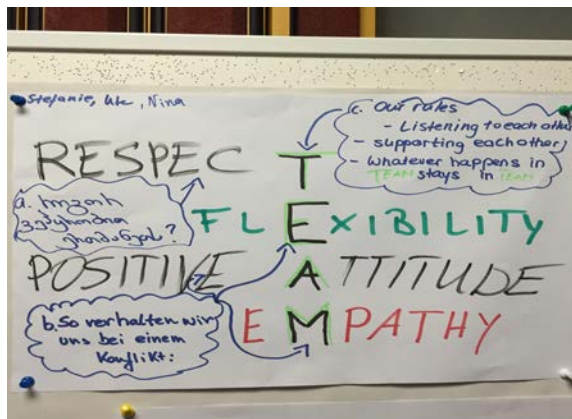 Stefanie, Ute, Nina
c. Our rules
- Listening to each other
- supporting each other,
- Whatever happens in
TEAM stays in TEAM
RESPECT
a. როგორ
ვეპყრობით
ერთმანეთს?
FLEXIBILITY
POSITIVE ATTITUDE
b. So verhalten wir
uns bei einem
Konflikt:
EMPATHY